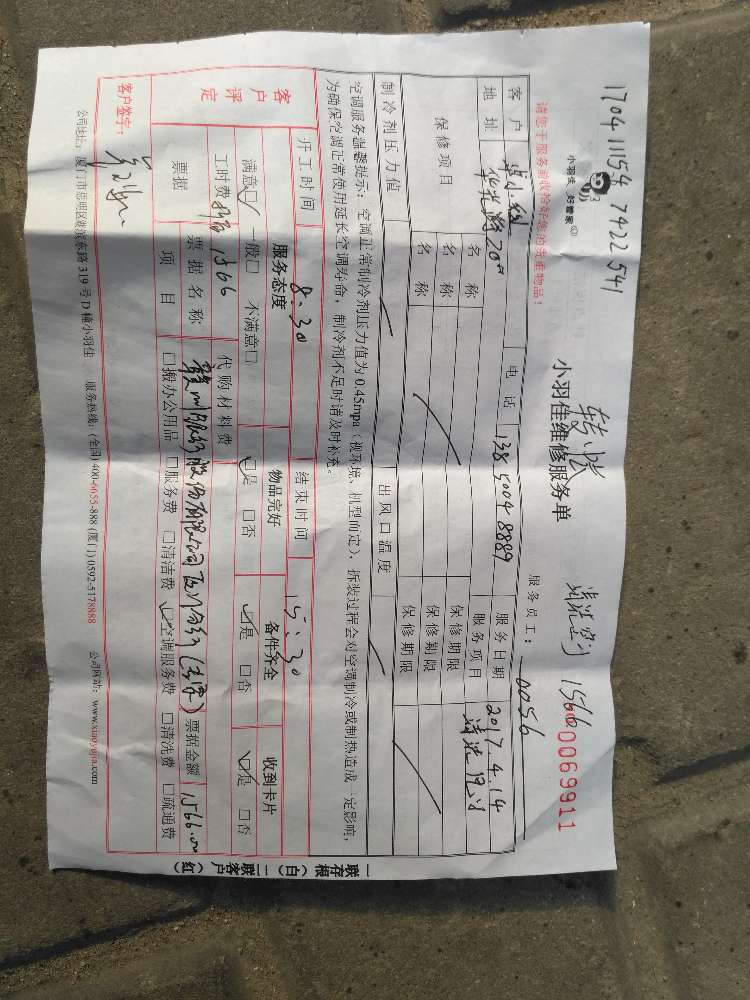 1704111547422541
小羽佳 好管家
转账
清洗空调 1566
请您于服务前收拾好您的贵重物品！
小羽佳维修服务单
0069911
服务员工： 0056
客户 电话 13850048889 服务日期 2017.4.14
地址 服务项目 清洗
保修项目 名称 保修期限
名称 保修期限
名称 保修期限
制冷剂压力值 出风口温度
空调服务温馨提示：空调正常制冷剂压力值为0.45mpa（视环境、机型而定），拆装过程会对空调制冷或制热造成一定影响，
为确保空调正常使用延长空调寿命，制冷剂不足时请及时补充。
开工时间 8:30 结束时间 15:30
客户评定 服务态度 物品完好 备件齐全 收到卡片
满意☑ 一般□ 不满意□ ☑是 □否 ☑是 □否 ☑是 □否
工时费 1566 代购材料费
票据 票据名称 股份有限公司 票据金额 1566.00
项目 □搬办公用品 □服务费 □清洁费 ☑空调服务费 □清洗费 □疏通费
客户签字：
公司地址：厦门市思明区湖滨东路319号D幢小羽佳 服务热线：(全国)400-6055-888 (厦门)0592-5178888 公司网站：www.xiaoyujia.com
一联存根（白） 二联客户（红）